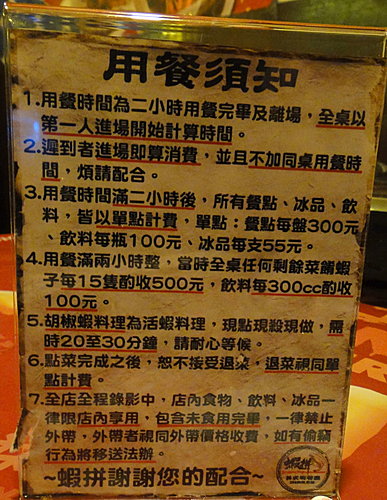 用餐須知
1.用餐時間為二小時用餐完畢及離場，全桌以
第一人進場開始計算時間。
2.遲到者進場即算消費，並且不加同桌用餐時
間，煩請配合。
3.用餐時間滿二小時後，所有餐點、冰品、飲
料，皆以單點計費，單點：餐點每盤300元
、飲料每瓶100元、冰品每支55元。
4.用餐滿兩小時整，當時全桌任何剩餘菜餚蝦
子每15隻酌收500元，飲料每300cc酌收
100元。
5.胡椒蝦料理為活蝦料理，現點現殺現做，需
時20至30分鐘，請耐心等候。
6.點菜完成之後，恕不接受退菜，退菜視同單
點計費。
7.全店全程錄影中，店內食物、飲料、冰品一
律限店內享用，包含未食用完畢，一律禁止
外帶，外帶者視同外帶價格收費，如有偷竊
行為將移送法辦。
~蝦拼謝謝您的配合~
蝦拼